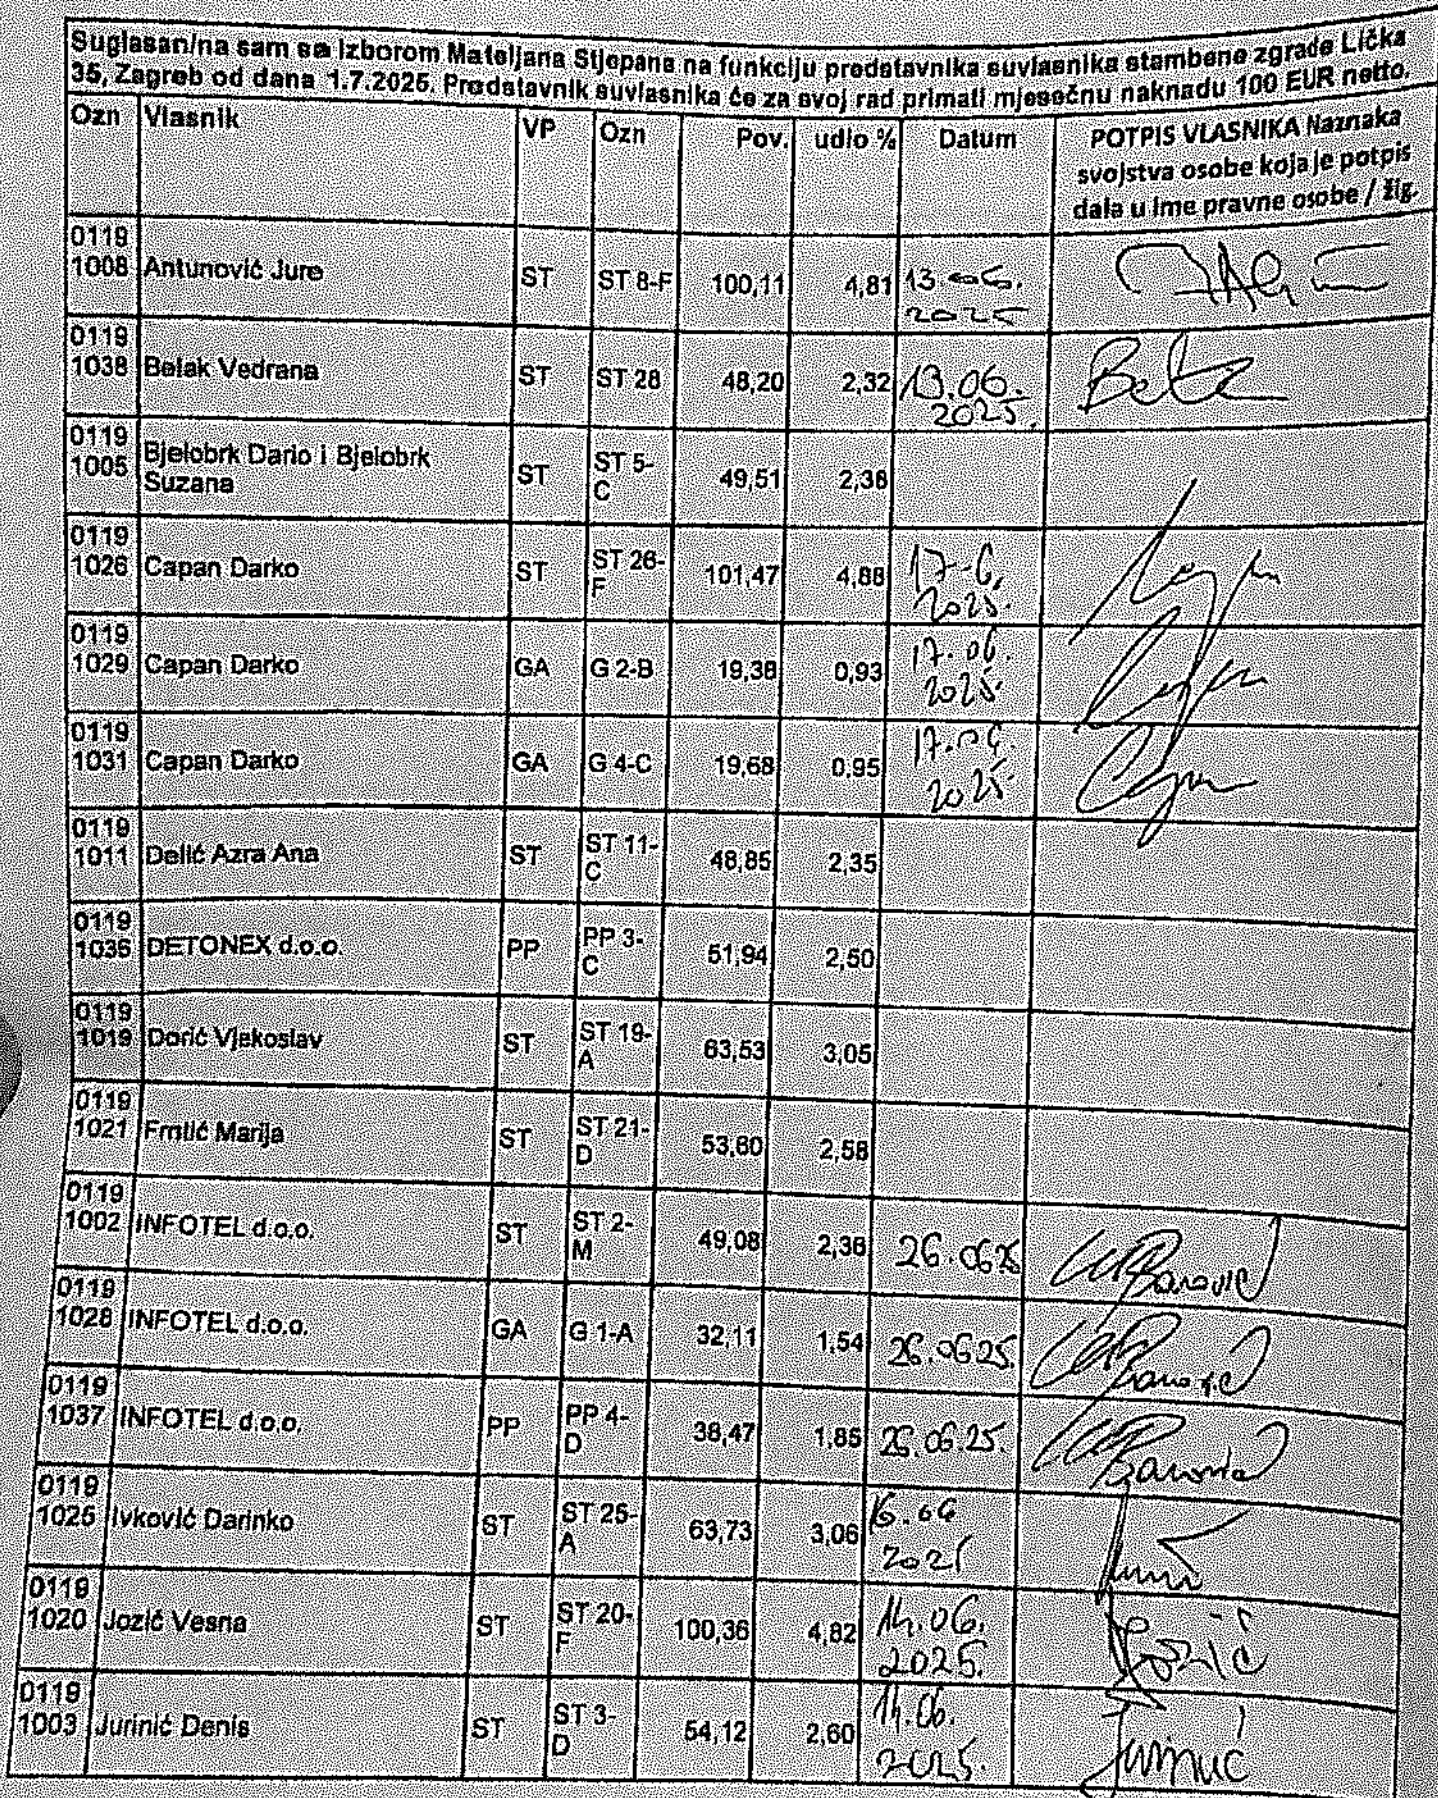 Suglasan/na sam sa izborom Mateljana Stjepana na funkciju predstavnika suvlasnika stambene zgrade Lička
35, Zagreb od dana 1.7.2025. Predstavnik suvlasnika će za svoj rad primati mjesečnu naknadu 100 EUR netto.
Ozn Vlasnik VP Ozn Pov. udio % Datum POTPIS VLASNIKA Naznaka
svojstva osobe koja je potpis
dala u ime pravne osobe / žig.
0119
1008 Antunović Jure ST ST 8-F 100,11 4,81 13.06.
2025
0119
1038 Belak Vedrana ST ST 28 48,20 2,32 13.06.
2025.
0119
1005 Bjelobrk Dario i Bjelobrk
Suzana ST ST 5-
C 49,51 2,38
0119
1026 Capan Darko ST ST 26-
F 101,47 4,88 17-6.
2025.
0119
1029 Capan Darko GA G 2-B 19,38 0,93 17.06.
2025.
0119
1031 Capan Darko GA G 4-C 19,68 0,95 17.06.
2025.
0119
1011 Delić Azra Ana ST ST 11-
C 48,85 2,35
0119
1036 DETONEX d.o.o. PP PP 3-
C 51,94 2,50
0119
1019 Dorić Vjekoslav ST ST 19-
A 63,53 3,05
0119
1021 Frntić Marija ST ST 21-
D 53,60 2,58
0119
1002 INFOTEL d.o.o. ST ST 2-
M 49,08 2,36 26.06 25 Banović
0119
1028 INFOTEL d.o.o. GA G 1-A 32,11 1,54 26.06 25. Banović
0119
1037 INFOTEL d.o.o. PP PP 4-
D 38,47 1,85 26.06.25. Banović
0119
1025 Ivković Darinko ST ST 25-
A 63,73 3,06 16.06
2025
0119
1020 Jozić Vesna ST ST 20-
F 100,36 4,82 14.06.
2025. Jozić
0119
1003 Jurinić Denis ST ST 3-
D 54,12 2,60 14.06.
2025. Jurinić